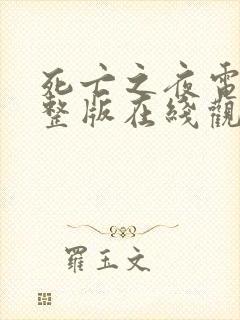 死亡之夜電
整版在綫觀
羅玉文